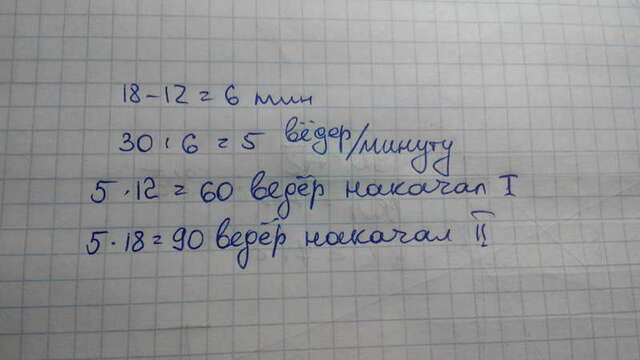 18-12=6 мин
30:6=5 вёдер/минуту
5·12=60 ведёр накачал I
5·18=90 ведёр накачал II